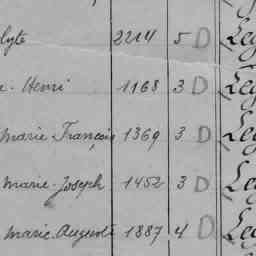 lyte 2214 5 D Leg
e. Henri 1168 3 D Leg
Marie-François 1369 3 D Leg
Marie-Joseph 1452 3 D Leg
Marie-August 1887 4 D Leg